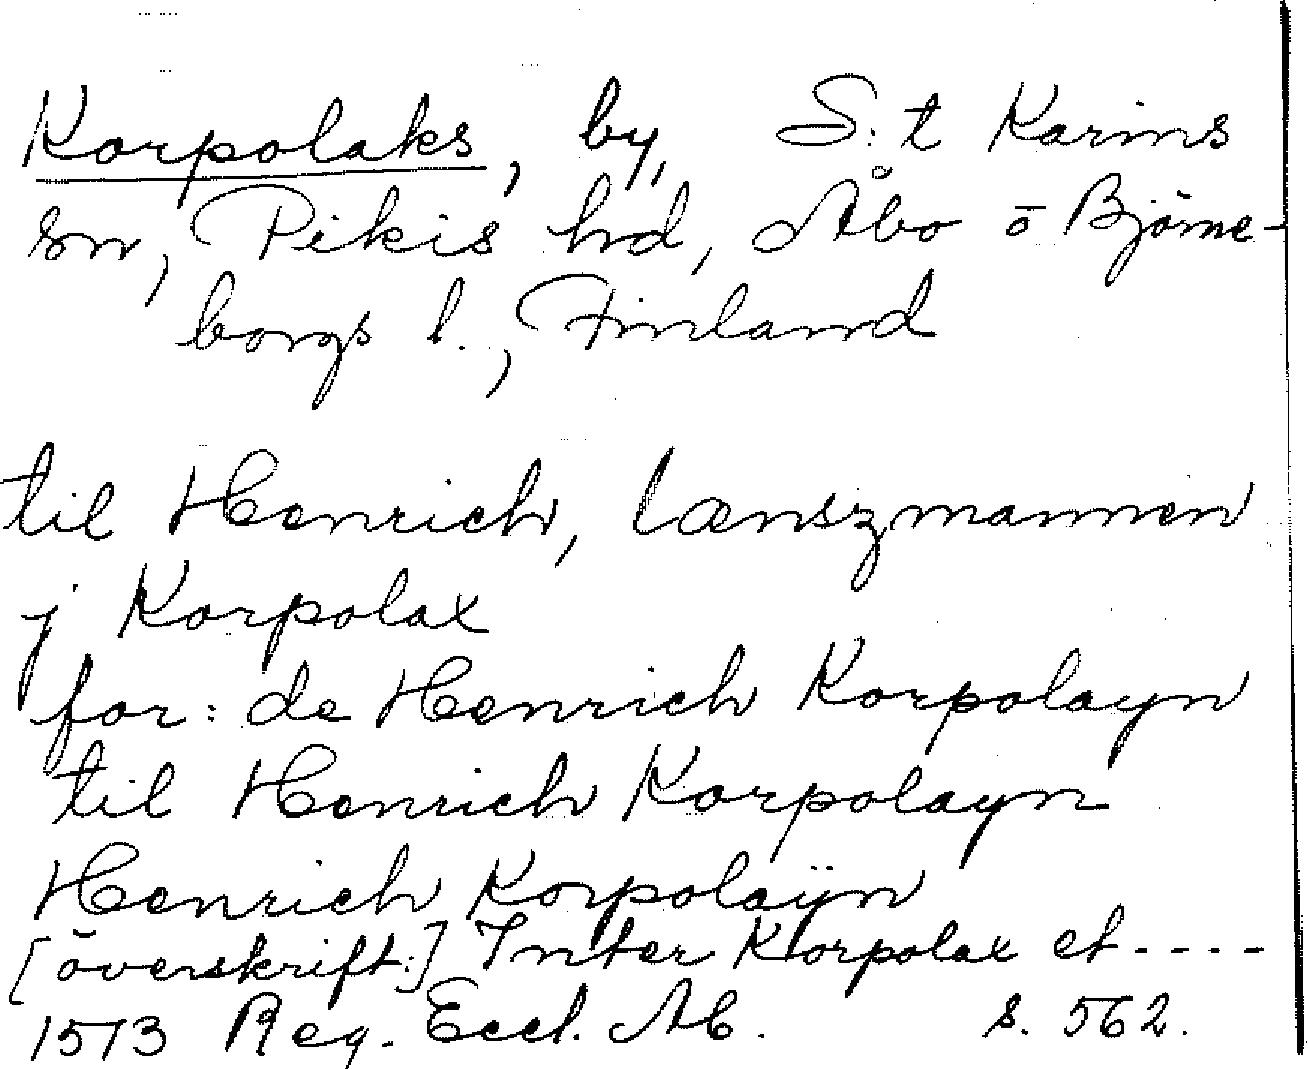 Korpolaks, by, S:t Karins
sn, Pikis hd, Åbo o Björne-
borgs l., Finland
til Henrich, lænszmannen
j Korpolax
for: de Henrich Korpolayn
til Henrich Korpolayn
Henrich Korpolaÿn
[överskrift:] Inter Korpolax et ----
1513 Reg. Eccl. Ab. s. 562.